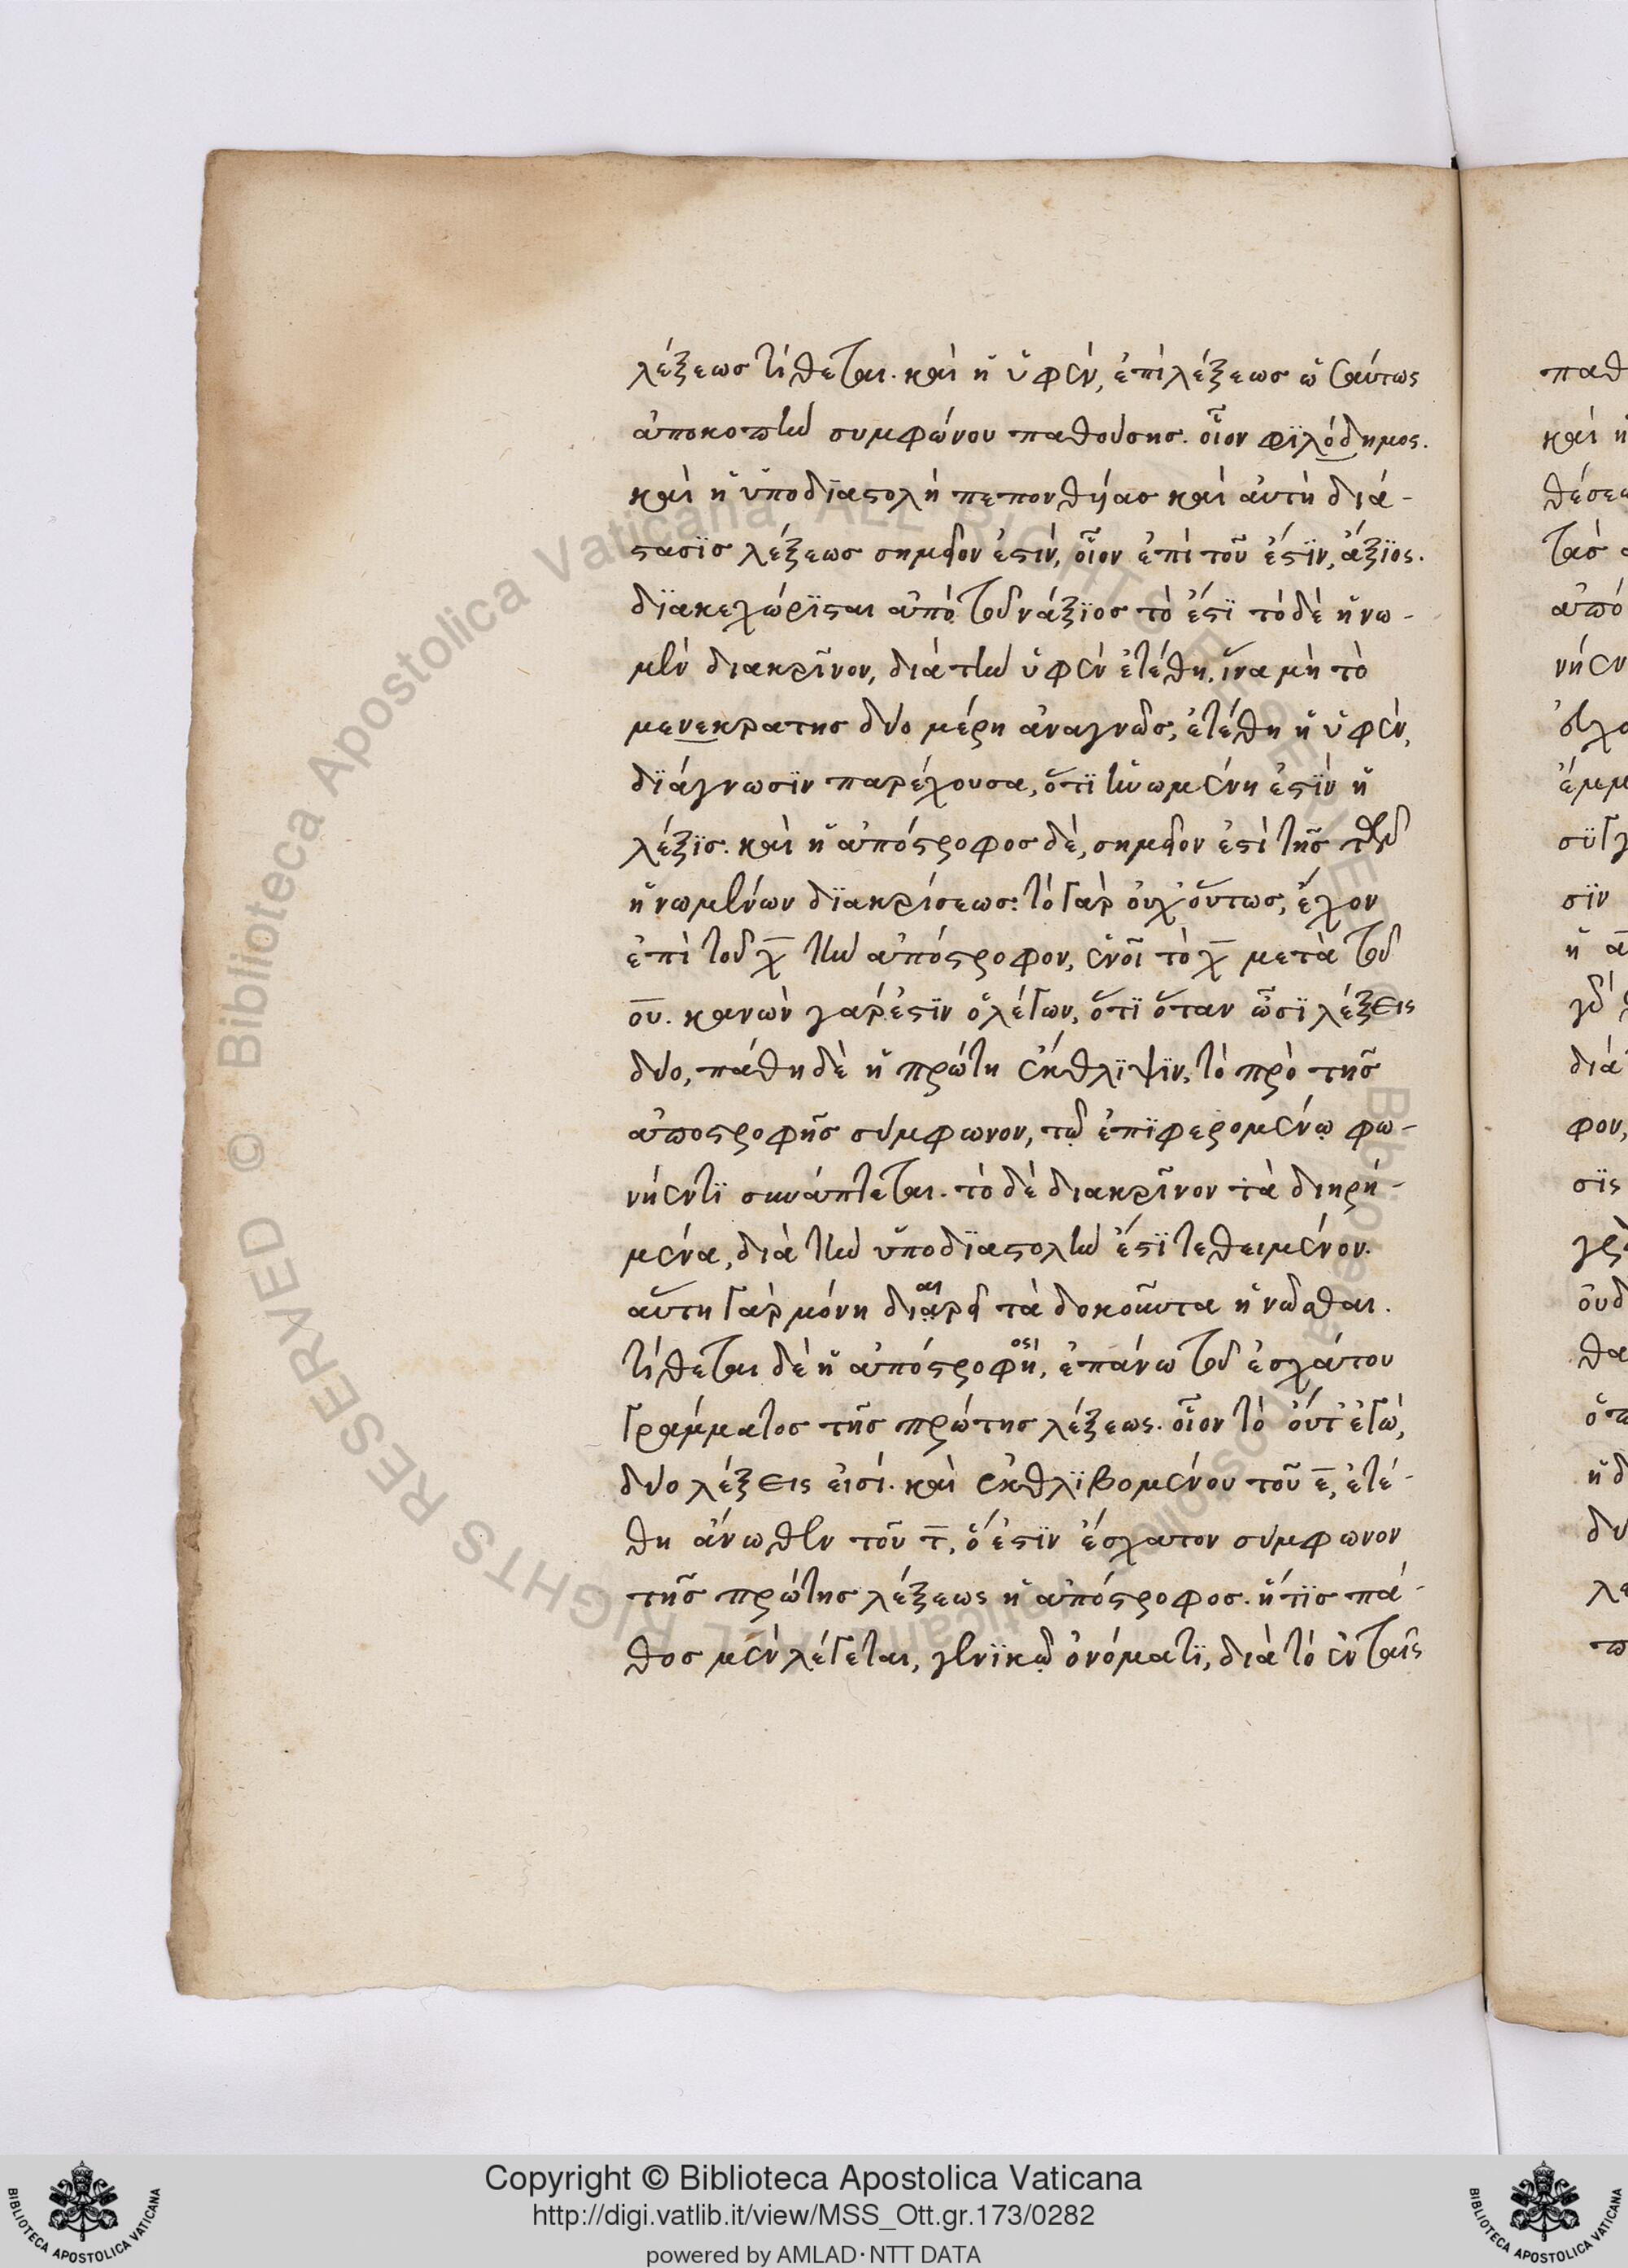 λέξεως τίθεται. καὶ ἡ ὑφὲν, ἐπὶ λέξεως ὡσαύτως
ἀποκοπὴν συμφώνου παθούσης. οἷον φϊλόδημος.
καὶ ἡ ὑποδϊαστολὴ πεπονθήας καὶ ἀυτὴ διά-
στασϊς λέξεως σημεῖον ἐστὶν, οἷον ἐπὶ τοῦ ἐστϊν, ἄξϊος.
δϊακεχώρϊσται ἀπὸ τοῦ νάξϊος τὸ ἐστϊ τὸ δὲ ἡνω-
μὲν διακρῖνον, διὰ τὴν ὑφὲν ἐτέθη. ἵνα μὴ τὸ
μενεκρατης δύο μέρη ἀναγνῶς, ἐτέθη ἡ ὑφὲν,
δϊάγνωσϊν παρέχουσα, ὅτϊ ἡνωμένη ἐστϊν ἡ
λέξϊς. καὶ ἡ ἀπόστροφος δὲ, σημεῖον ἐστὶ τῆς τῶν
ἡνωμένων δϊακρίσεως. τὸ γὰρ ὀυχ ὅυτως, ἔχον
ἐπὶ τοῦ χ̅ τὴν ἀπόστροφον, ἑνοῖ τὸ χ̅ μετὰ τοῦ
ο̅υ̅. κανὼν γάρ ἐστϊν ὁ λέγων, ὅτϊ ὅταν ὦσϊ λέξεις
δύο, πάθη δὲ ἡ πρώτη ἔκθλϊψϊν, τὸ πρὸ τῆς
ἀποστροφῆς σύμφωνον, τῷ ἐπϊφερομένῳ φω-
νήεντϊ συνάπτεται. τὸ δὲ διακρῖνον τὰ διηρη-
μένα, διὰ τὴν ὑποδϊαστολὴν ἐστϊ τεθειμένον.
αὕτη γὰρ μόνη διαιρεῖ τὰ δοκοῦντα ἡνῶσθαι.
τίθεται δὲ ἡ ἀπόστροφὴος, ἐπάνω τοῦ ἐσχάτου
γράμματος τῆς πρώτης λέξεως. οἷον τὸ ὀύτ' ἐγώ,
δύο λέξεις εἰσί. καὶ ἐκθλϊβομένου τοῦ ε̅, ἐτέ-
θη ἄνωθεν τοῦ τ̅, ὅ ἐστϊν ἔσχατον σύμφωνον
τῆς πρώτης λέξεως ἡ ἀπόστροφος. ἥτϊς πά-
θος μὲν λέγεται, γενϊκῷ ὀνόματϊ, διὰ τὸ ἐν ταῖς
παθ
καὶ ἡ
θέσεω
τὰς
ἀπό
νήεν
ἐμμ
συϊγ
σϊν
διὰ
φον,
σϊς
ὀυδ
θα
ἡ δ
δυ
λε
Copyright © Biblioteca Apostolica Vaticana
http://digi.vatlib.it/view/MSS_Ott.gr.173/0282
powered by AMLAD·NTT DATA
BIBLIOTECA APOSTOLICA VATICANA
BIBLIOTECA APOSTOLICA VATICANA
© Biblioteca Apostolica Vaticana ALL RIGHTS RESERVED